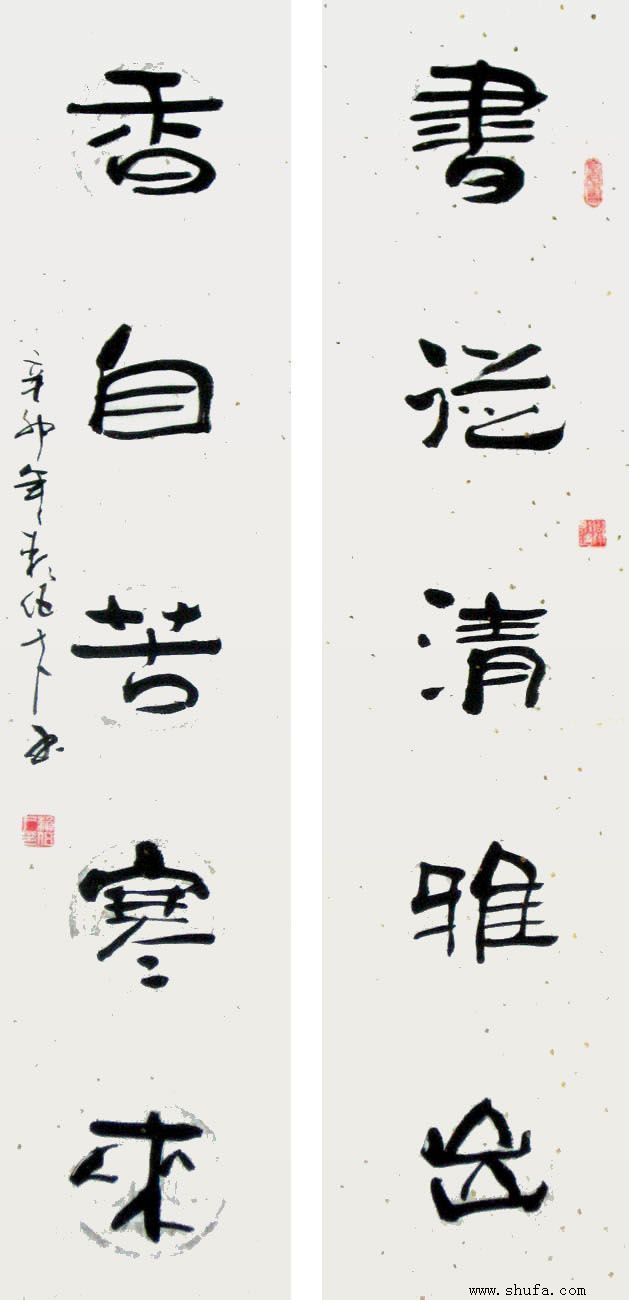 書從清雅出
香自苦寒來
辛卯年
www.shufa.com